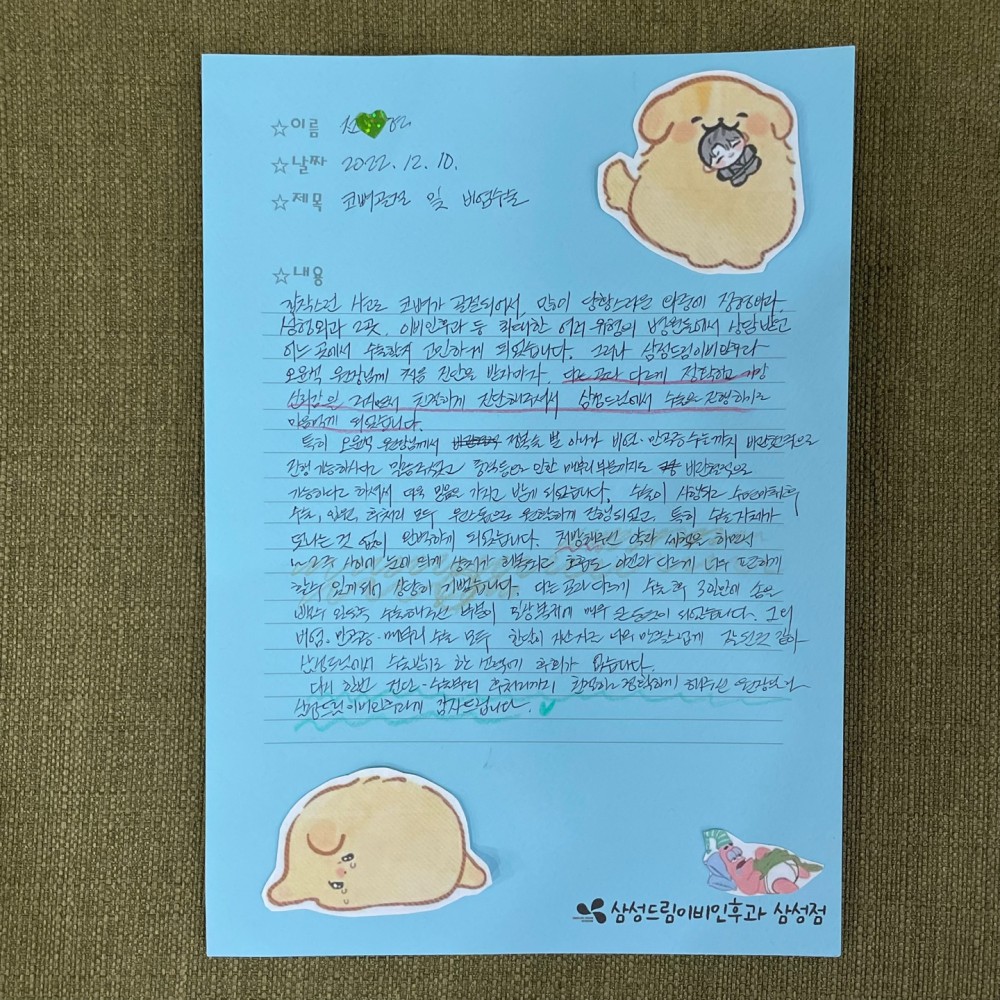 ☆이름
☆날짜 2022. 12. 10.
☆제목 코뼈골절 및 비염수술
☆내용
갑작스런 사고로 코뼈가 골절되어서, 많이 당황스러운 와중에 정형외과
성형외과 2곳, 이비인후과 등 최대한 여러 병원들에서 상담받고
어느 곳에서 수술할지 고민하게 되었습니다. 그러나 삼성드림이비인후과
오윤석 원장님께 처음 진단을 받자마자, 다른 곳과 다르게 정확하고 가장
신뢰감있 친절하게 진단해주셔서 삼성드림에서 수술을 진행하기로
마음먹게 되었습니다.
특히 오윤석 원장님께서 골절 뿐 아니라 비염·만곡증 수술까지 비관혈적으로
진행 가능하시다고 말씀주셨고 통증 등으로 인한 매부리 부분까지도 비관혈적으로
가능하다고 하셔서 더욱 믿음을 가지고 받게 되었습니다. 수술이 시작되고
수술, 입원, 후처리 모두 원활하게 진행되었고, 특히 수술 자체가
모나는 것 없이 완벽하게 되었습니다. 처방해주신 약과 세척을 하면서
1~2주 사이에 눈에 띄게 상처가 회복되고 호흡도 이전과 다르게 너무 편하게
할 수 있게 되어 상당히 기뻤습니다. 다른 곳과 다르게 수술 후 3일만에 솜을
빼고 수술해주신 부분이 일상복귀에 매우 큰 도움이 되었습니다. 그외
비염·만곡증·매부리 수술 모두 한달이 지난 지금 너무 만족스럽게 잘 된것 같아
삼성드림에서 수술받기로 한 선택에 후회가 없습니다.
다시 한번 진단·수술부터 후처리까지 친절하고 정확하게 해주신 원장님과
삼성드림이비인후과에 감사드립니다.
삼성드림이비인후과 삼성점